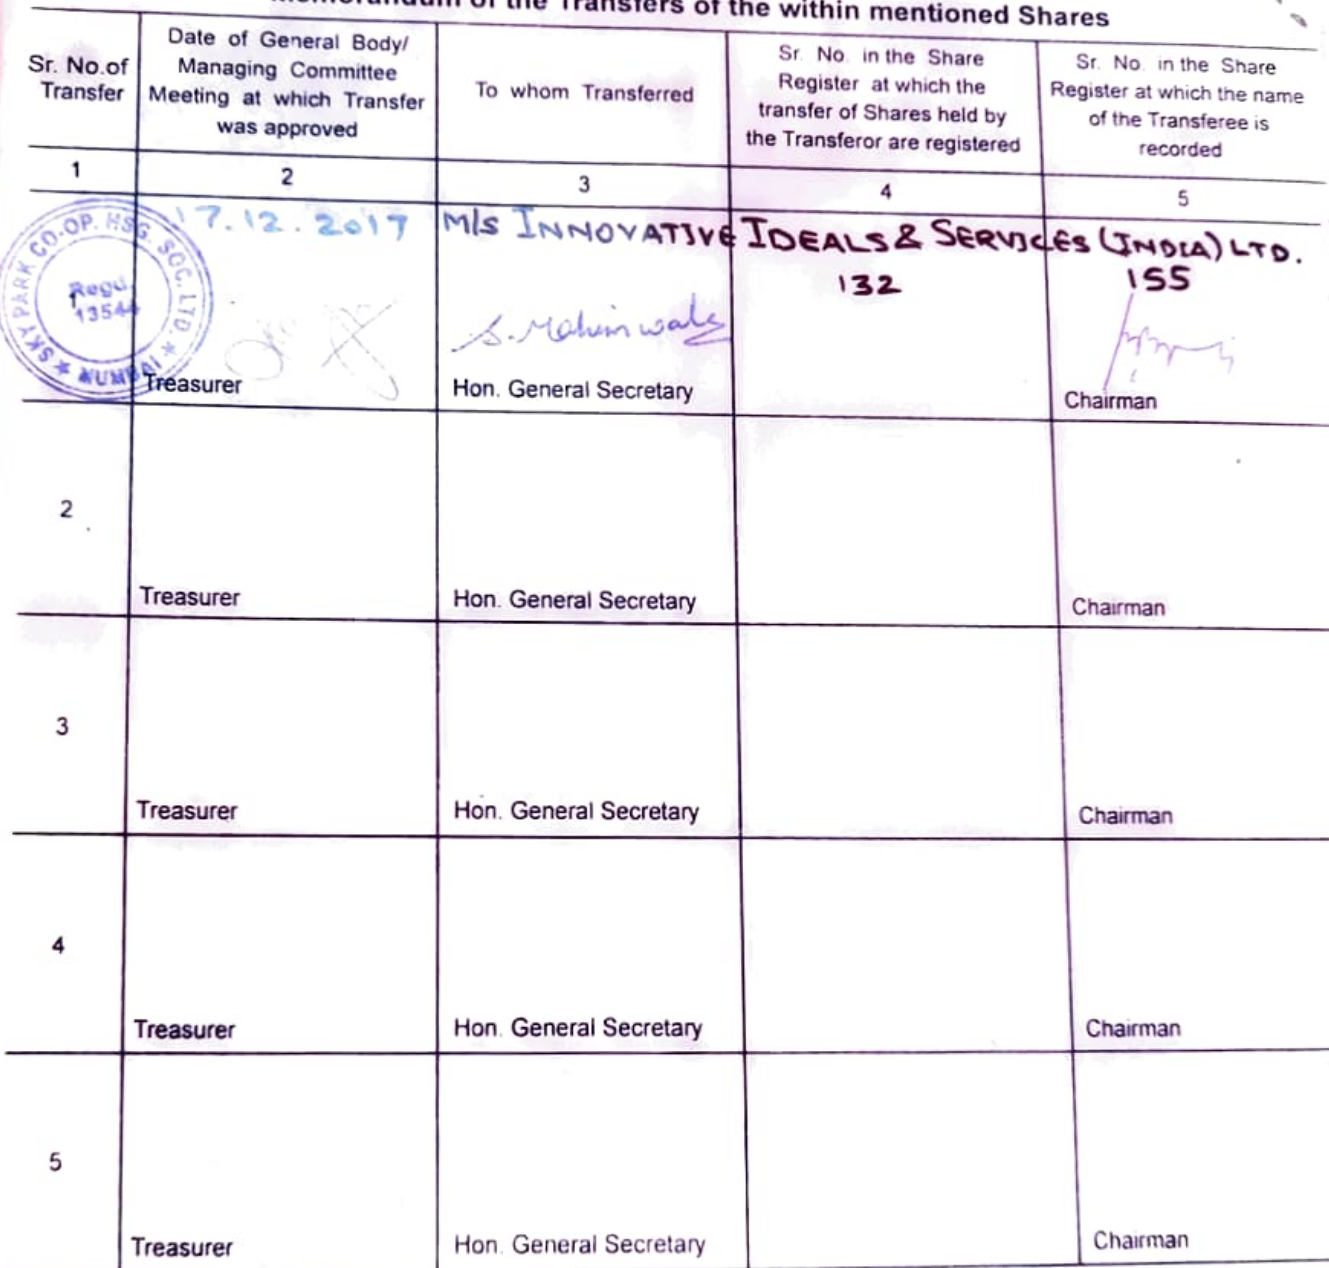 Memorandum of the Transfers of the within mentioned Shares
Sr. No.of
Transfer
Date of General Body/
Managing Committee
Meeting at which Transfer
was approved
To whom Transferred
Sr. No. in the Share
Register at which the
transfer of Shares held by
the Transferor are registered
Sr. No. in the Share
Register at which the name
of the Transferee is
recorded
1
2
3
4
5
17.12.2017 M/S INNOVATIVE IDEALS & SERVICES (INDIA) LTD.
132
155
SKY PARK CO-OP. HSG. SOC. LTD.
★ MUMBAI ★
Regd.
13544
1
Treasurer
Hon. General Secretary
Chairman
2
Treasurer
Hon. General Secretary
Chairman
3
Treasurer
Hon. General Secretary
Chairman
4
Treasurer
Hon. General Secretary
Chairman
5
Treasurer
Hon. General Secretary
Chairman